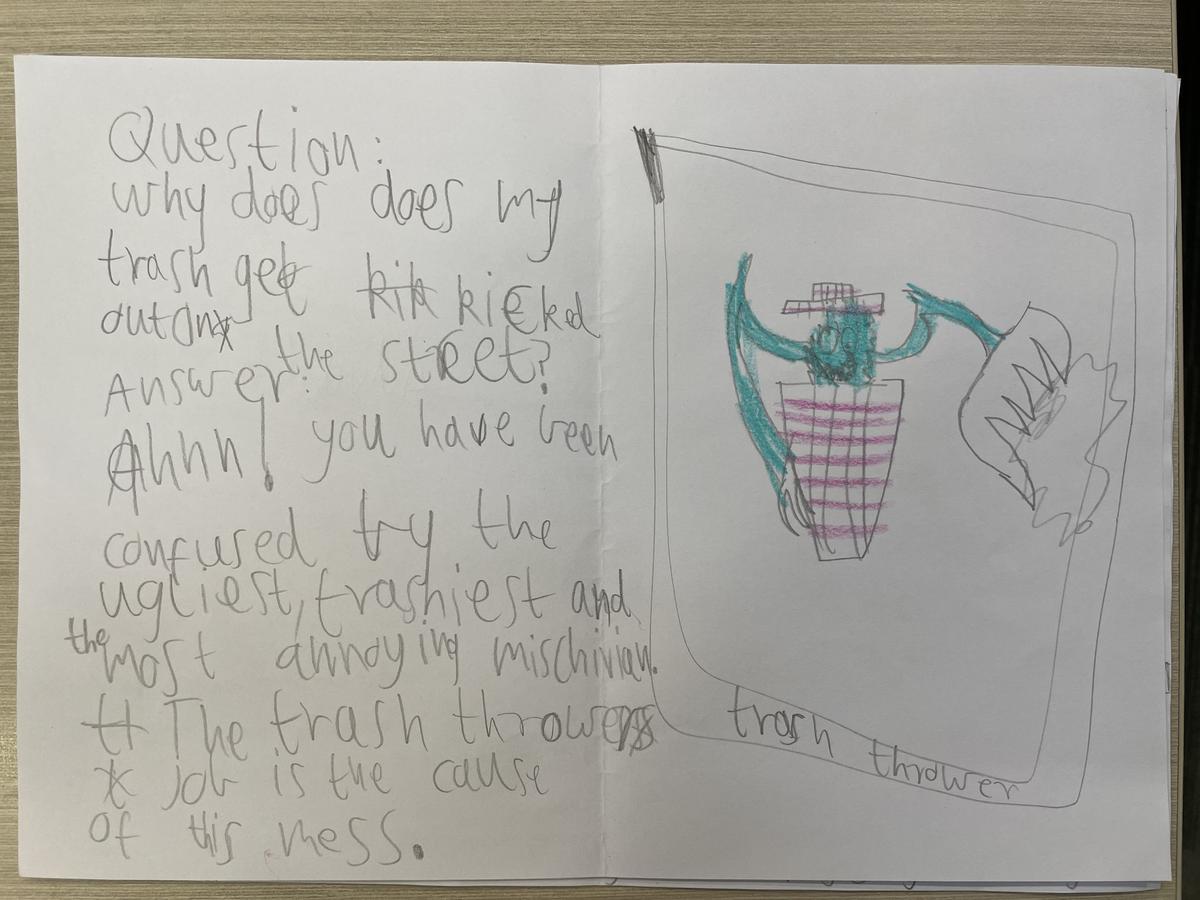 Question:
why does does my
trash get kicked
out on the street?
Answer:
Ahhh! you have been
confused by the
ugliest, trashiest and
the most annoying mischivian.
The trash throwers
job is the cause
of this mess.
trash thrower